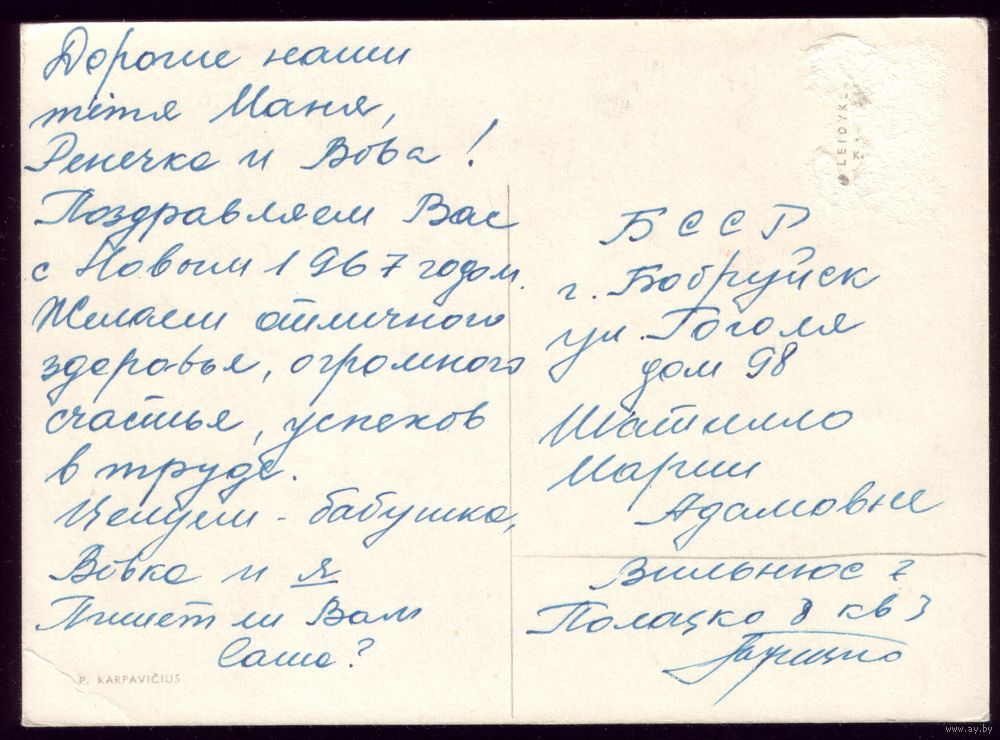 Дорогие наши
тётя Маня,
Ренечка и Вова!
Поздравляем Вас
с Новым 1967 годом.
Желаем отличного
здоровья, огромного
счастья, успехов
в труде.
Целуем - бабушка,
Вовка и я
Пишет ли Вам
Саша?
P. KARPAVIČIUS
БССР
г. Бобруйск
ул. Гоголя
дом 98
Шатилло
Марии
Адамовне
Вильнюс 7
Полацко 8 кв 3
www.ay.by